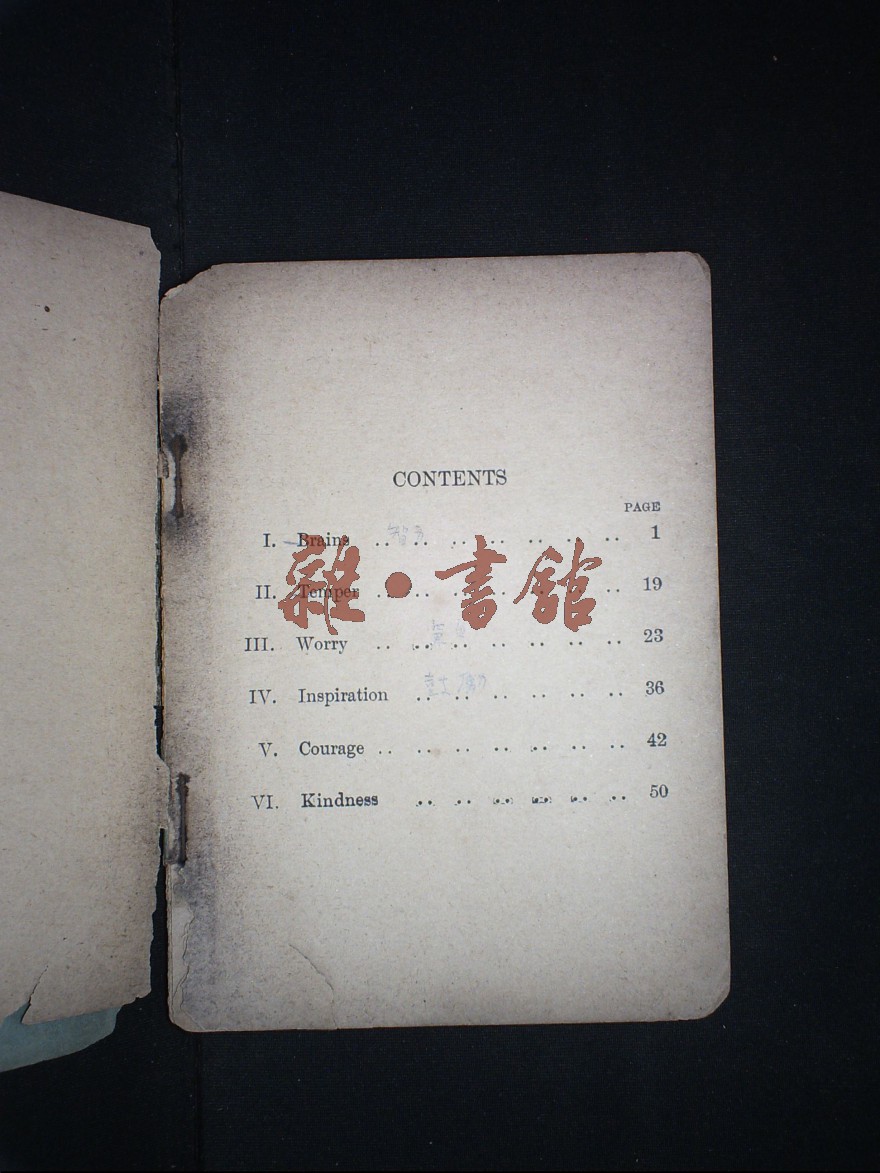 CONTENTS
PAGE
I. Brains .. .. .. .. .. .. .. 1
II. Temper .. .. .. .. .. .. .. 19
III. Worry .. .. .. .. .. .. .. 23
IV. Inspiration .. .. .. .. .. .. 36
V. Courage .. .. .. .. .. .. .. 42
VI. Kindness .. .. .. .. .. .. 50
雜·書館